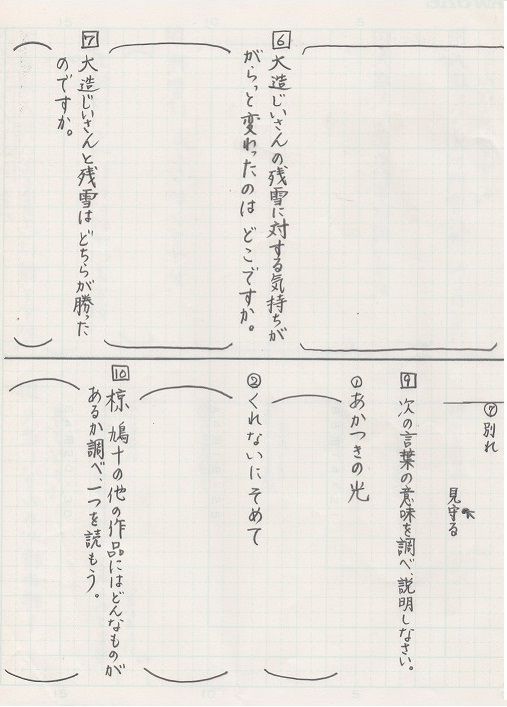 6 大造じいさんの残雪に対する気持ちが
がらっと変わったのはどこですか。
7 大造じいさんと残雪はどちらが勝った
のですか。
⑦別れ
見守る
9 次の言葉の意味を調べ、説明しなさい。
①あかつきの光
②くれないにそめて
10 椋鳩十の他の作品にはどんなものが
あるか調べ、一つを読もう。